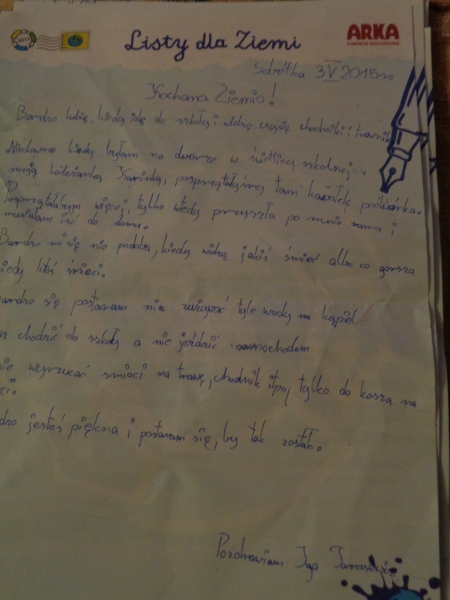 Listy dla Ziemi
ARKA
Sobótka 3 V 2015 r.
Kochana Ziemio!
Bardzo lubię, kiedy idę do szkoły i widzę czyste chodniki i trawnik
Niedawno kiedy byłam na dworze w świetlicy szkolnej i
moją koleżanką posprzątałyśmy tam kawałek podwórka.
Posprzątałabym więcej, tylko wtedy przyszła po mnie mama i
musiałam iść do domu.
Bardzo mi się nie podoba, kiedy widzę jakiś śmieć albo co gorsza
kiedy ktoś śmieci.
Bardzo się postaram nie zużywać tyle wody na kąpiel
chodzić do szkoły a nie jeździć samochodem
nie wyrzucać śmieci na trawę, chodnik itp, tylko do kosza na
jesteś piękna i postaram się, by tak zostało.
Pozdrawiam Iga